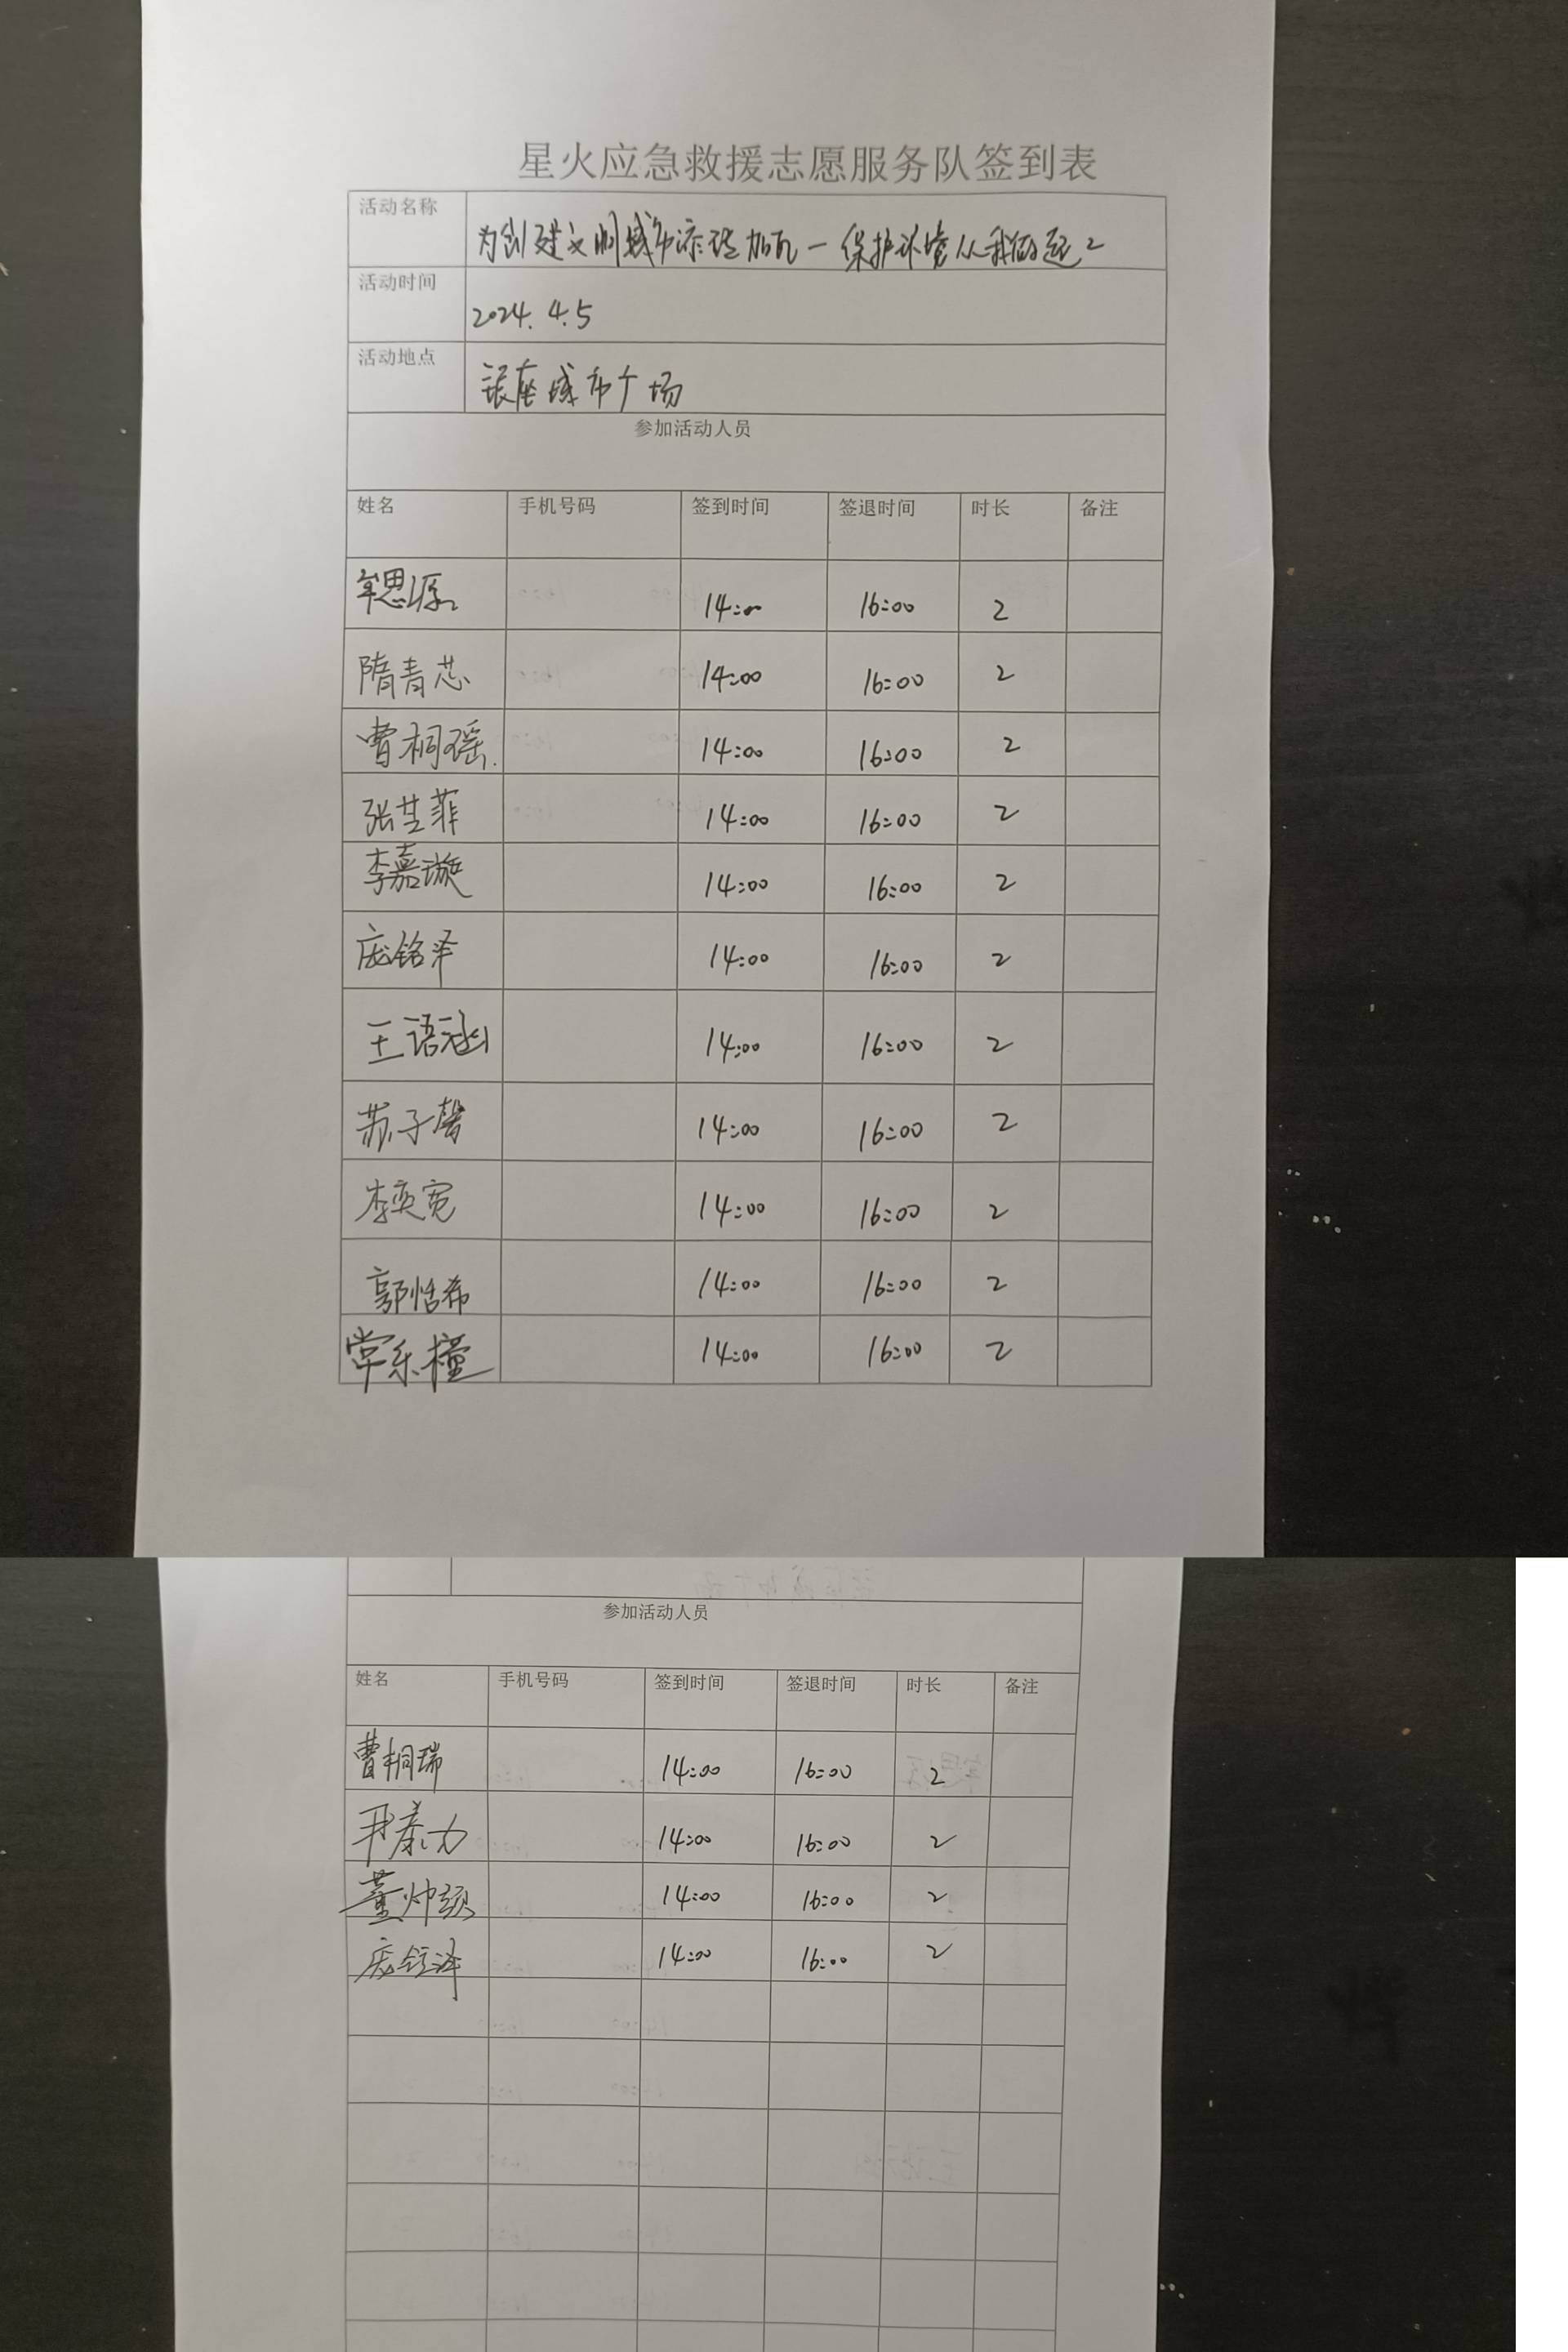 星火应急救援志愿服务队签到表
活动名称 为创建文明城市添砖加瓦一保护环境从我做起2
活动时间 2024.4.5
活动地点 银座城市广场
参加活动人员
姓名 手机号码 签到时间 签退时间 时长 备注
牟思源 14:00 16:00 2
隋青芯 14:00 16:00 2
曹桐瑶 14:00 16:00 2
张芸菲 14:00 16:00 2
李嘉璇 14:00 16:00 2
庞铭泽 14:00 16:00 2
王语涵 14:00 16:00 2
苏子馨 14:00 16:00 2
李奕宽 14:00 16:00 2
郭恬希 14:00 16:00 2
常乐橦 14:00 16:00 2
参加活动人员
姓名 手机号码 签到时间 签退时间 时长 备注
曹桐瑞 14:00 16:00 2
14:00 16:00 2
董帅颉 14:00 16:00 2
庞钰泽 14:00 16:00 2